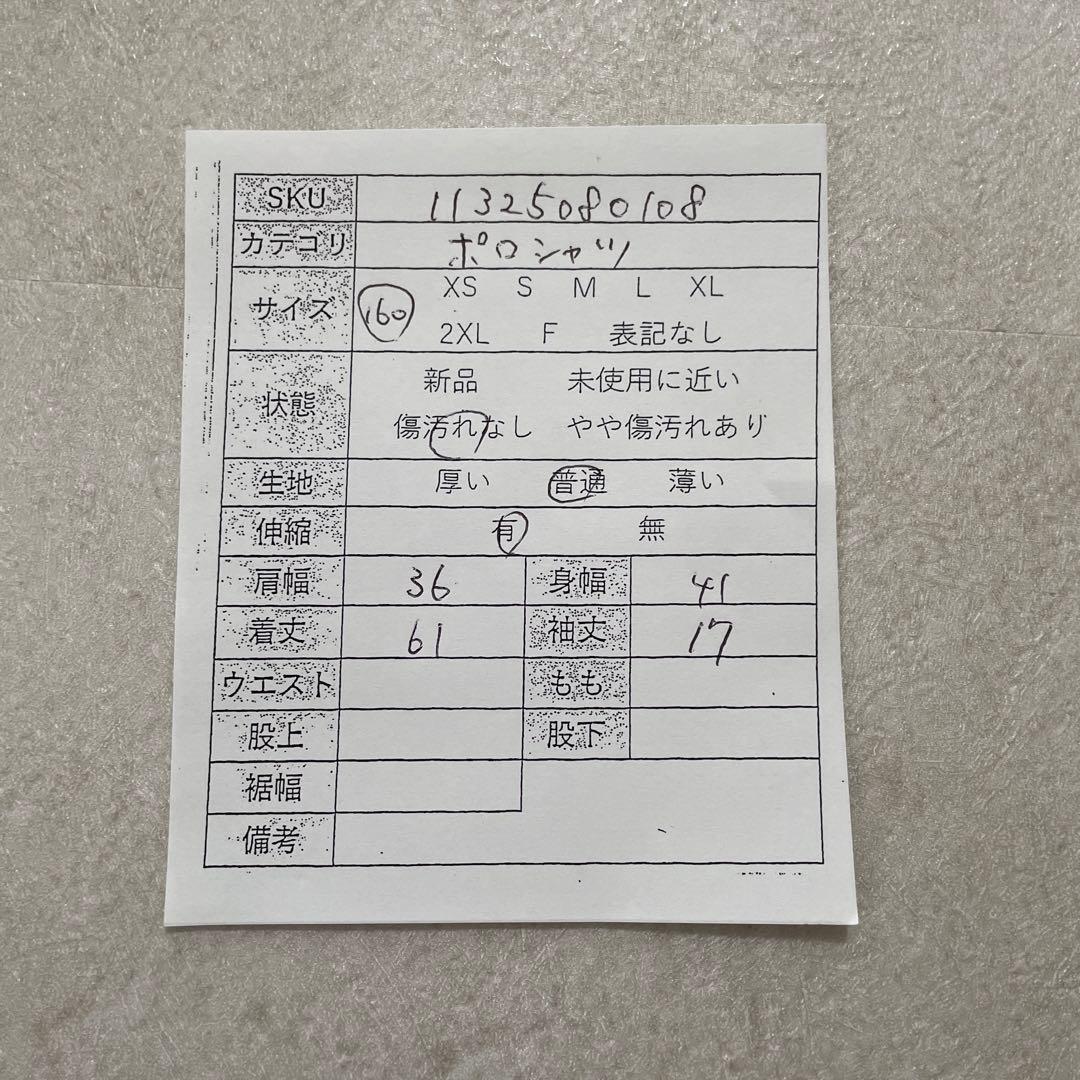 SKU 11325080108
カテゴリ ポロシャツ
サイズ 160 XS S M L XL
2XL F 表記なし
状態 新品 未使用に近い
傷汚れなし やや傷汚れあり
生地 厚い 普通 薄い
伸縮 有 無
肩幅 36 身幅 41
着丈 61 袖丈 17
ウエスト もも
股上 股下
裾幅
備考